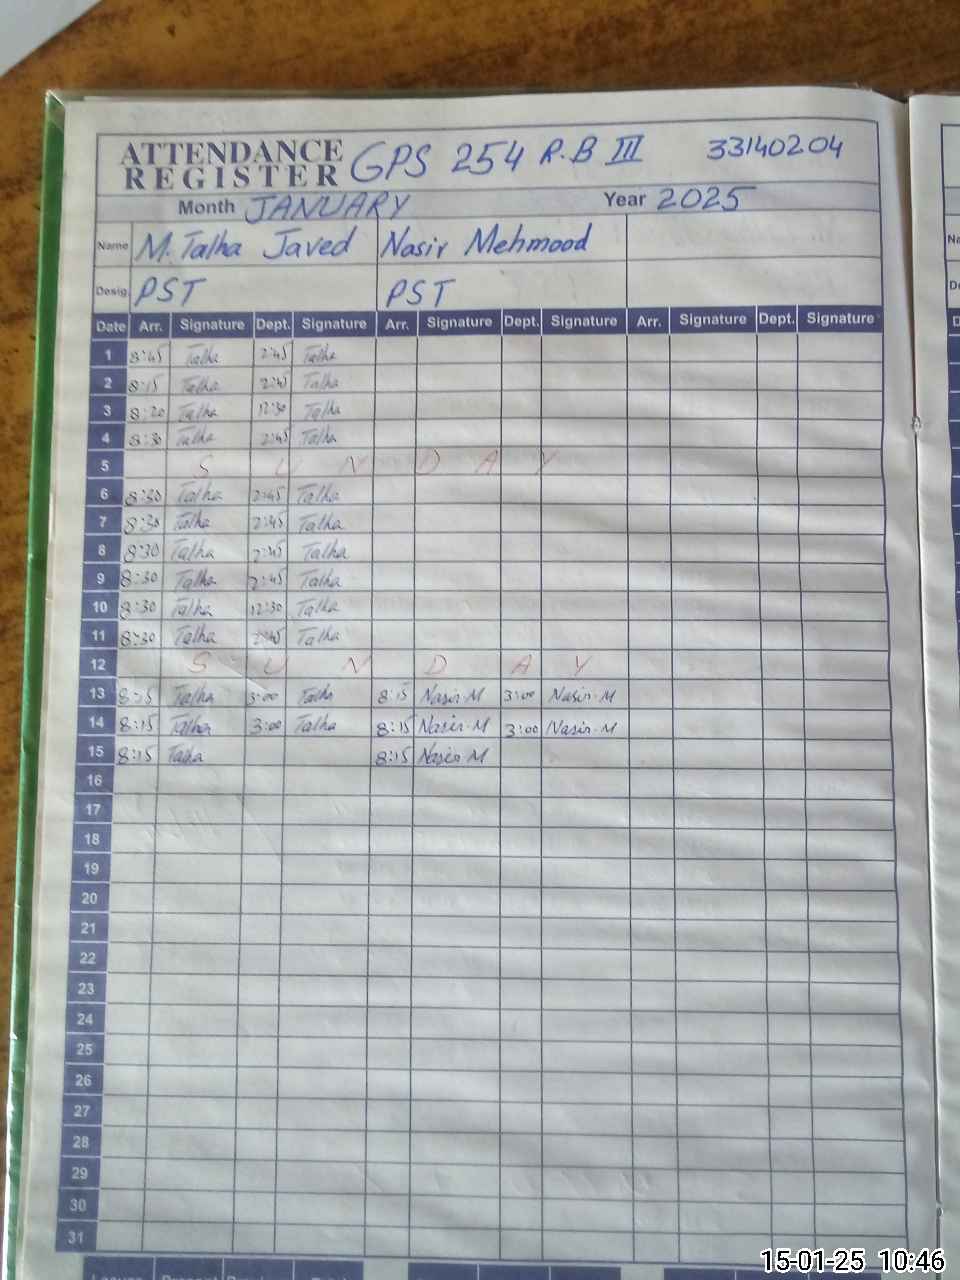 ATTENDANCE REGISTER GPS 254 R.B III 33140204
Month JANUARY Year 2025
Name M. Talha Javed Nasir Mehmood
Desig. PST PST
Date Arr. Signature Dept. Signature Arr. Signature Dept. Signature Arr. Signature Dept. Signature
1 8:45 Talha 2:45 Talha
2 8:15 Talha 2:45 Talha
3 8:20 Talha 12:30 Talha
4 8:30 Talha 2:45 Talha
5 SUNDAY
6 8:30 Talha 2:45 Talha
7 8:30 Talha 2:45 Talha
8 8:30 Talha 2:45 Talha
9 8:30 Talha 2:45 Talha
10 8:30 Talha 12:30 Talha
11 8:30 Talha 2:45 Talha
12 SUNDAY
13 8:15 Talha 3:00 Talha 8:15 Nasir-M 3:00 Nasir-M
14 8:15 Talha 3:00 Talha 8:15 Nasir-M 3:00 Nasir-M
15 8:15 Talha 8:15 Nasir-M
16
17
18
19
20
21
22
23
24
25
26
27
28
29
30
31
15-01-25 10:46